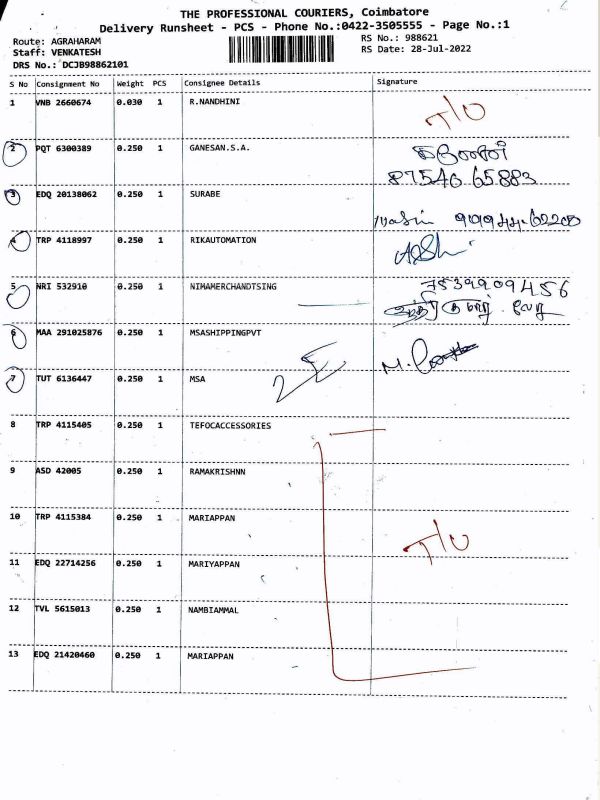 THE PROFESSIONAL COURIERS, Coimbatore
Delivery Runsheet - PCS - Phone No.:0422-3505555 - Page No.:1
Route: AGRAHARAM
Staff: VENKATESH
DRS No.: DCJB98862101
RS No.: 988621
RS Date: 28-Jul-2022
S No Consignment No Weight PCS Consignee Details Signature
1 VNB 2660674 0.030 1 R.NANDHINI T/O
2 PQT 6300389 0.250 1 GANESAN.S.A.
87540 65883
3 EDQ 20138062 0.250 1 SURABE
4 TRP 4118997 0.250 1 RIKAUTOMATION
5 NRI 532910 0.250 1 NIMAMERCHANDTSING 7539909456
6 MAA 291025876 0.250 1 MSASHIPPINGPVT
7 TUT 6136447 0.250 1 MSA
8 TRP 4115405 0.250 1 TEFOCACCESSORIES
9 ASD 42005 0.250 1 RAMAKRISHNN
10 TRP 4115384 0.250 1 MARIAPPAN T/O
11 EDQ 22714256 0.250 1 MARIYAPPAN
12 TVL 5615013 0.250 1 NAMBIAMMAL
13 EDQ 21420460 0.250 1 MARIAPPAN